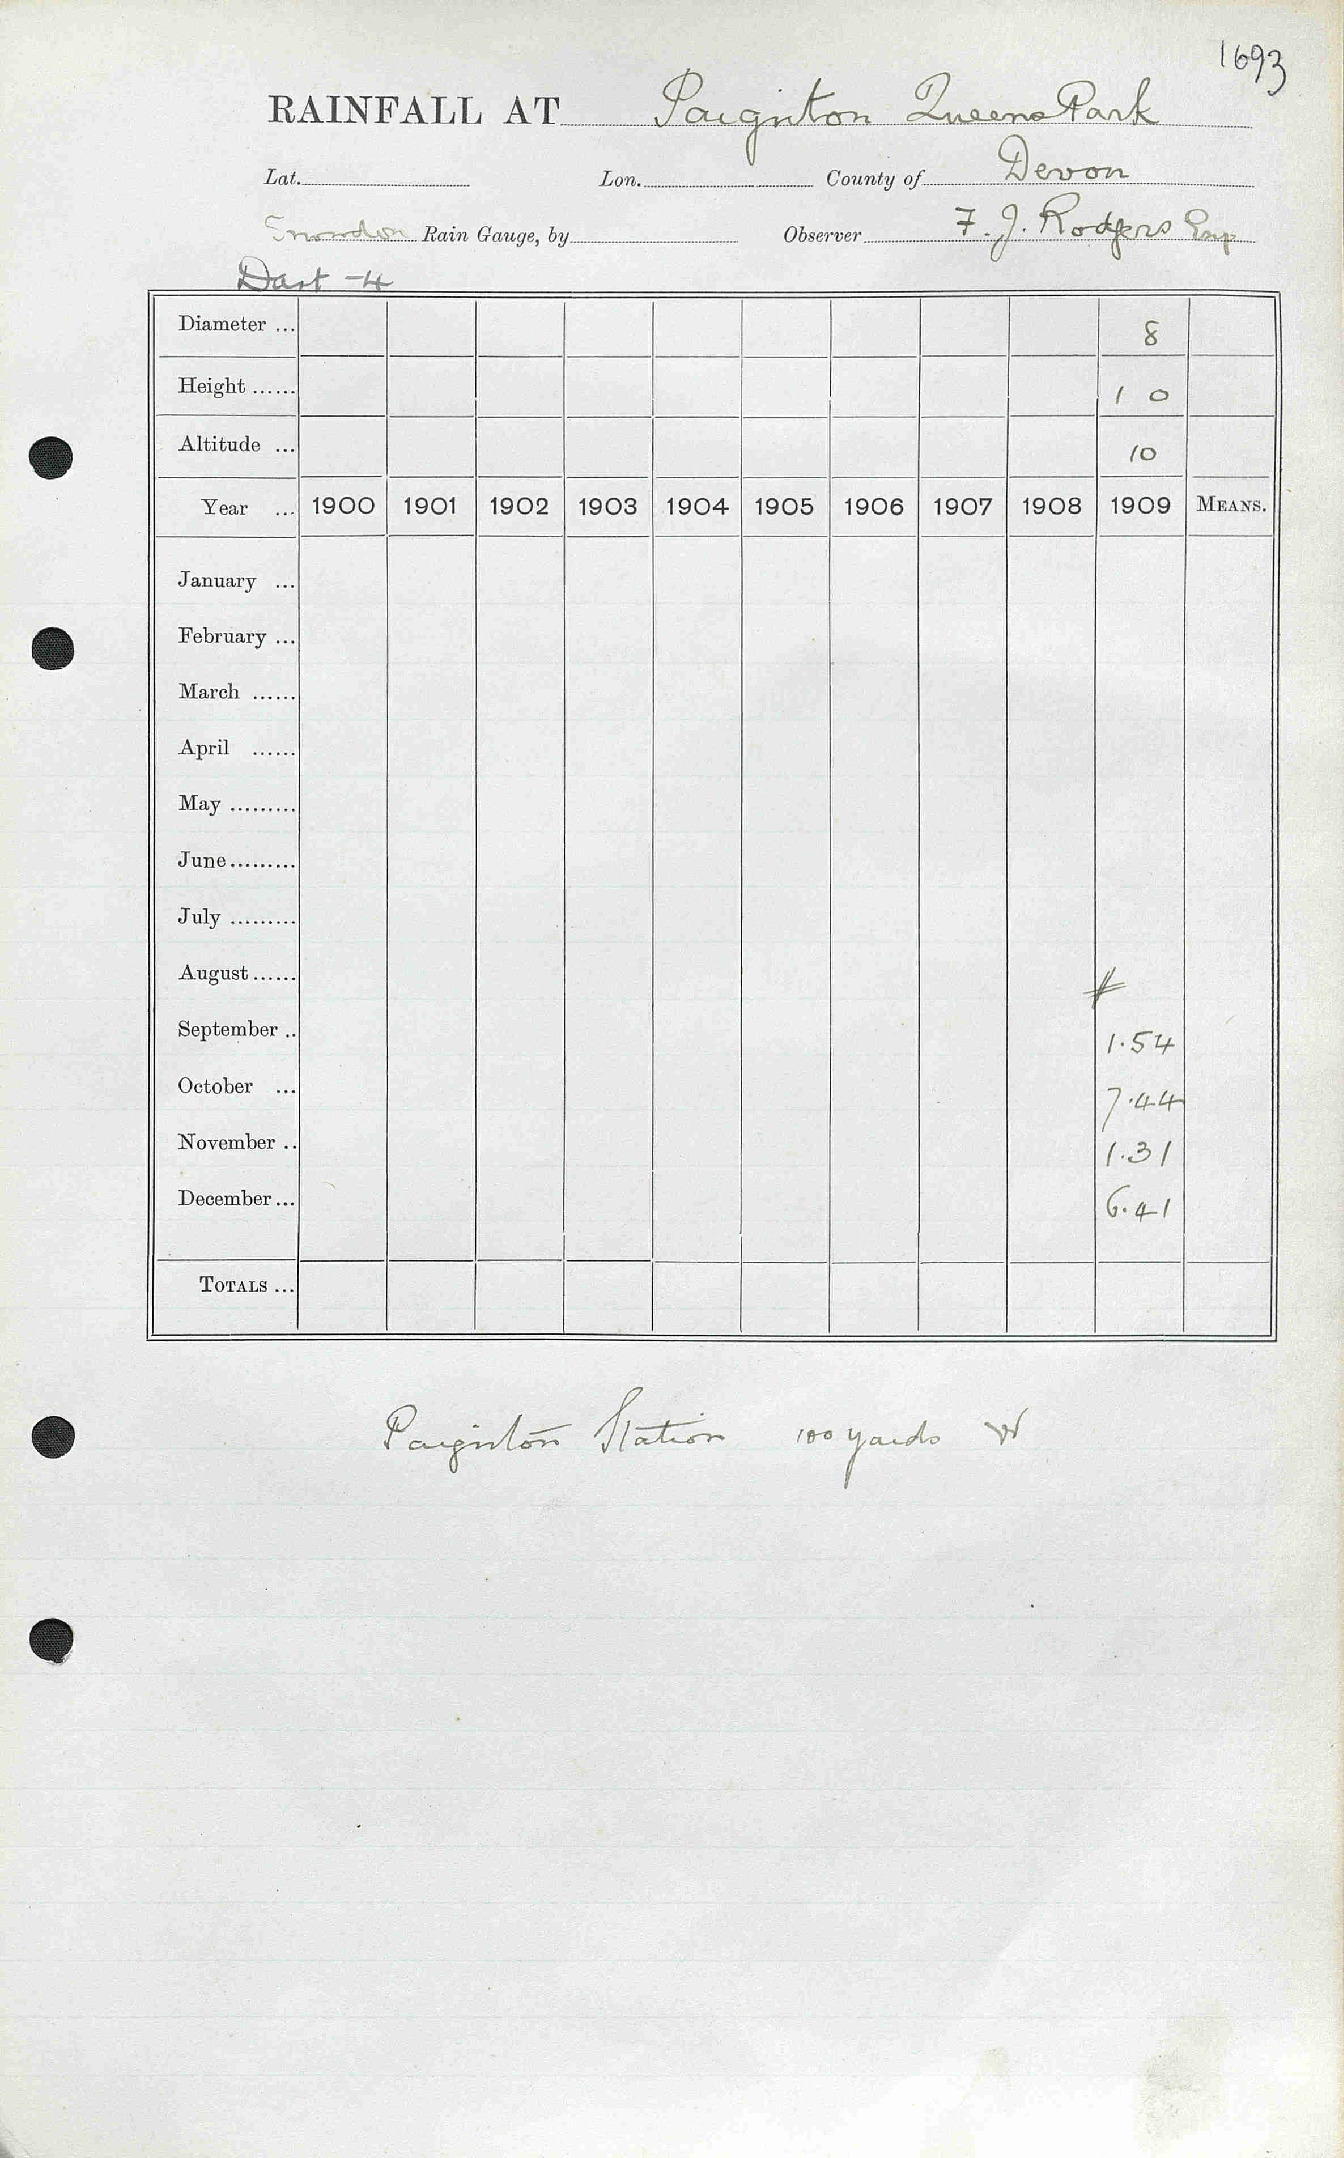 1693
RAINFALL AT Paignton Queens Park
Lat. Lon. County of Devon
Snowdon Rain Gauge, by Observer F. J. Rodgers Esq
Dart -4
Diameter ... 8
Height ...... 1 0
Altitude ... 10
Year ... 1900 1901 1902 1903 1904 1905 1906 1907 1908 1909 MEANS.
January ...
February ...
March ......
April ......
May .........
June.........
July .........
August...... #
September .. 1.54
October ... 7.44
November .. 1.31
December... 6.41
TOTALS ...
Paignton Station 100 yards W